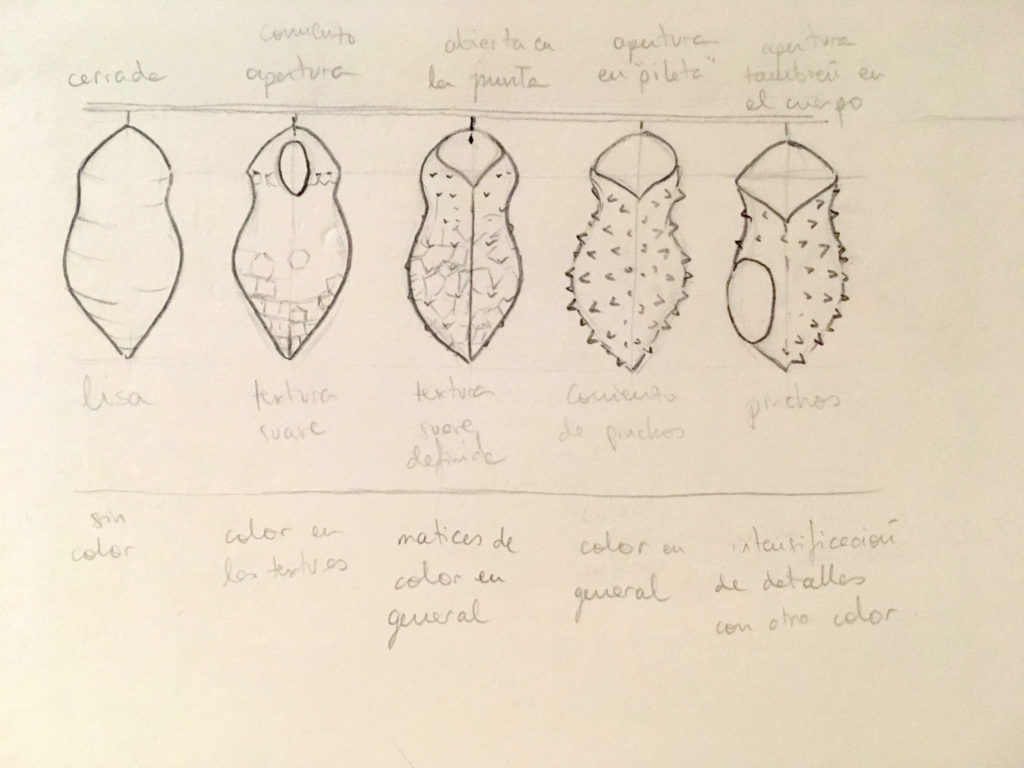 cerrada
comienzo
apertura
abierta en
la punta
apertura
en "pileta"
apertura
también en
el cuerpo
lisa
textura
suave
textura
suave,
definida
comienzo
de pinchos
pinchos
sin
color
color en
las texturas
matices de
color en
general
color en
general
intensificación
de detalles
con otro color